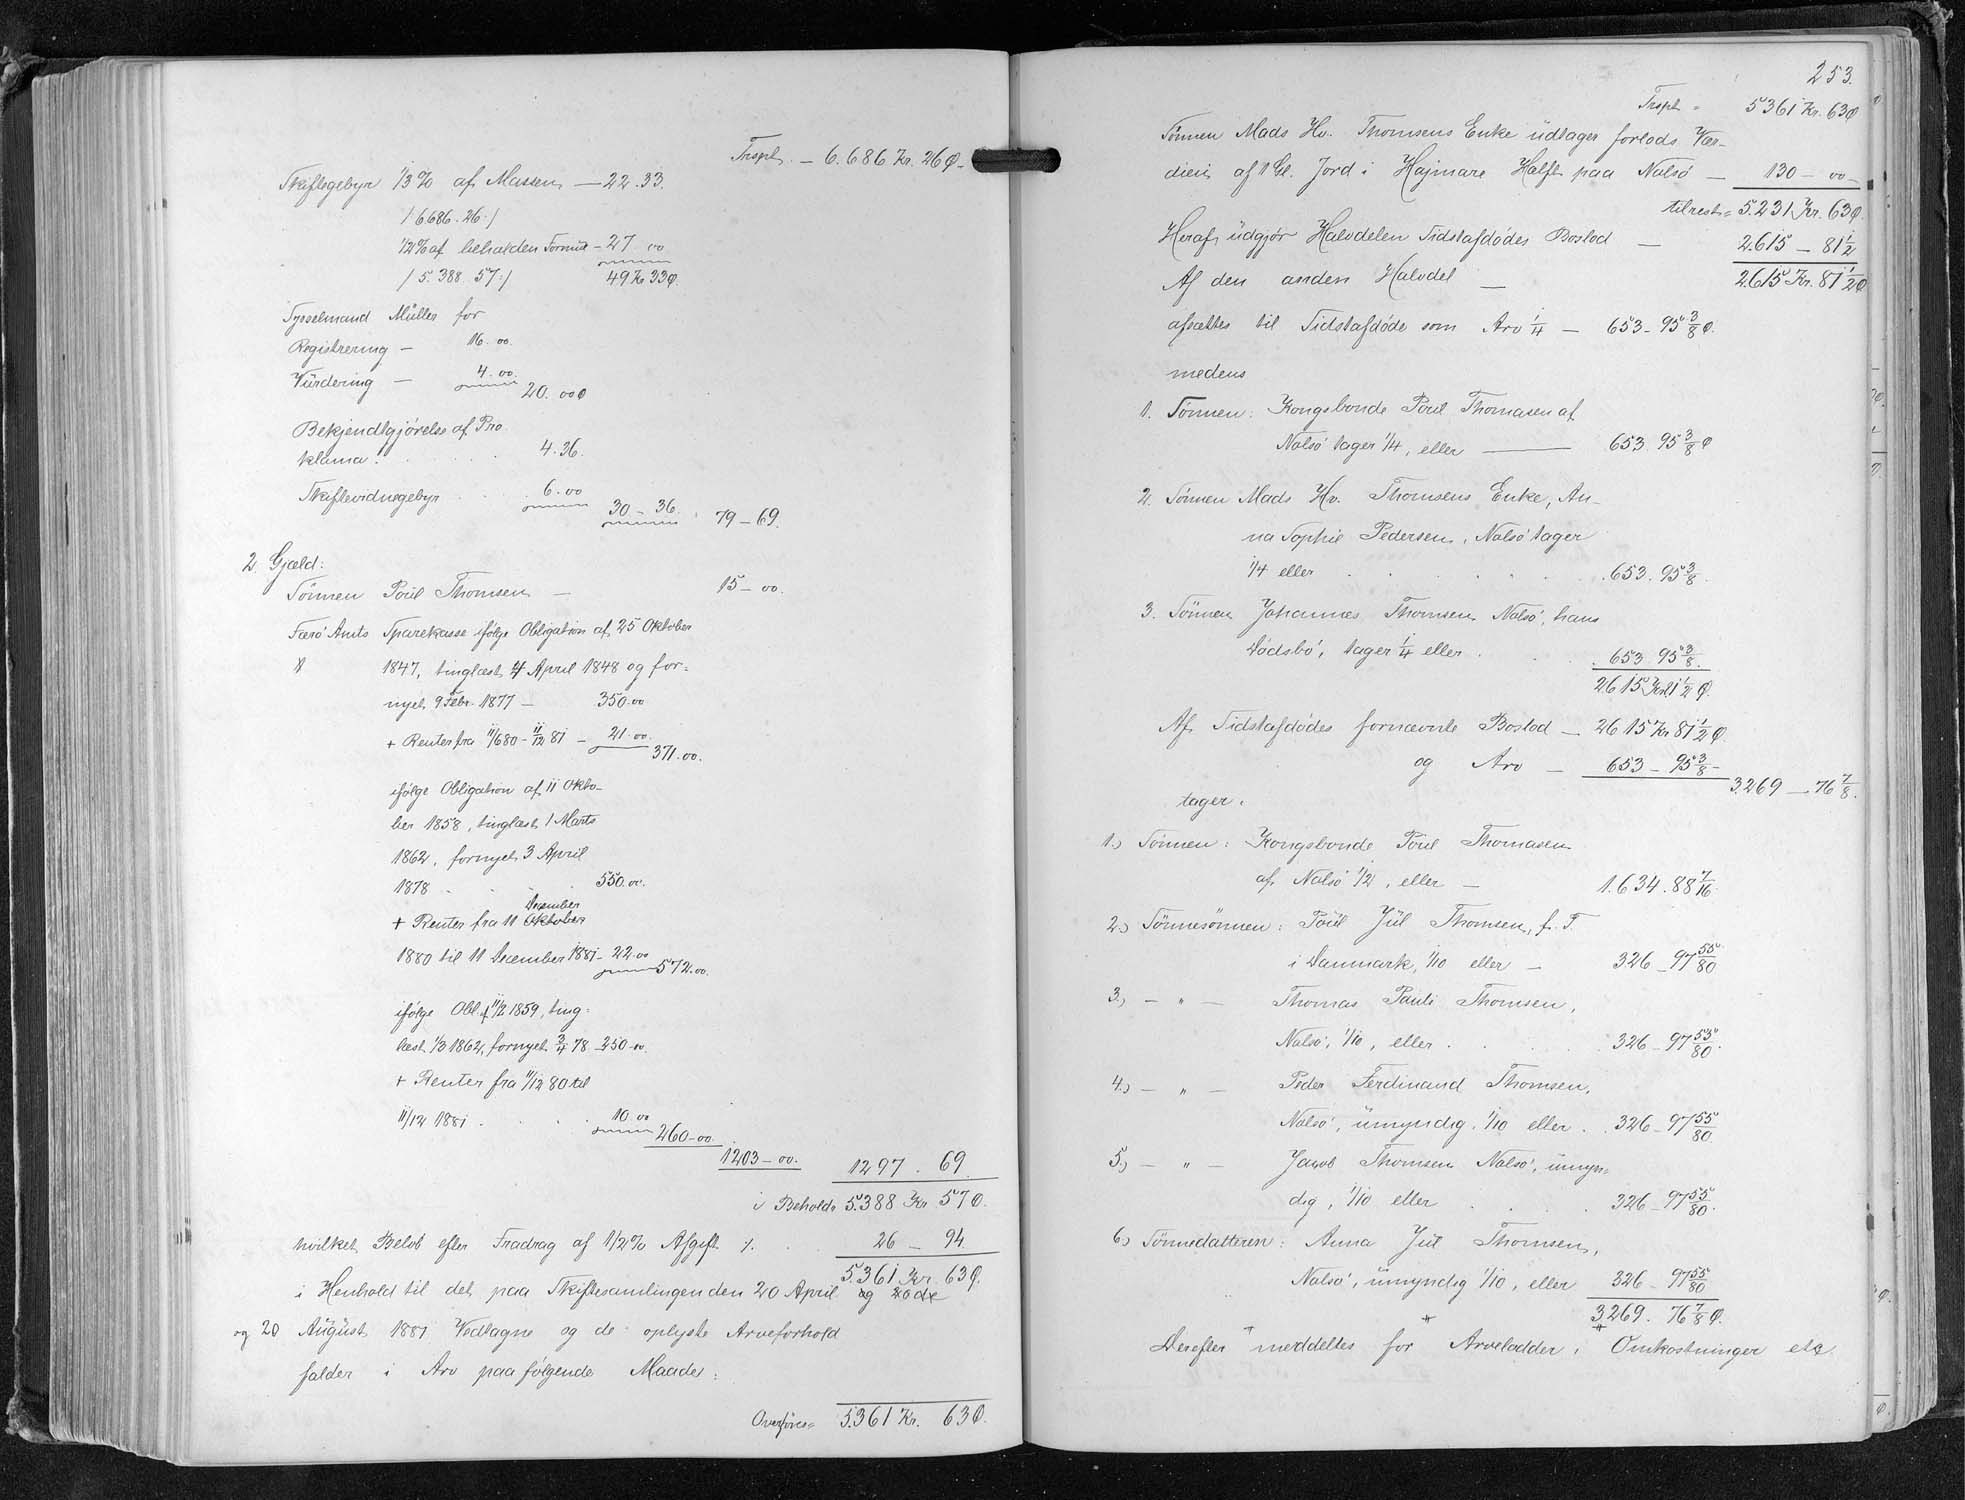 Trspt. — 6.686 Kr. 26 Ø.
Skiftegebyr 1/3 % af Massen — 22.33.
/ 6.686.26 /
1/2 % af beholden Formue — 27 00
/ 5.388 57 / 49 Kr 33 Ø.
Sysselmand Müller for
Registrering — 16.00.
Vürdering — 4.00. 20.00 Ø
Bekjendtgjörelse af Pro-
klama. 4.36.
Skiftevidnegebyr 6.00 30 — 36. 79 — 69.
2. Gjæld:
Sönnen Poül Thomsen — 15 — 00.
Færö Amts Sparekasse ifölge Obligation af 25 Oktober
1847, tinglæst 4 April 1848 og for=
nyet 9 Febr. 1877 — 350.00
+ Renter fra 11/6 80 - 11/12 81 — 21.00. 371.00.
ifölge Obligation af 11 Okto-
ber 1858, tinglæst 1 Marts
1862, fornyet 3 April
1878 550.00.
December
+ Renter fra 11 Oktober
1880 til 11 December 1881 — 22.00 572.00.
ifölge Obl. af 11/2 1859, ting=
læst 1/3 1862, fornyet 3/4 78 250 00.
+ Renter fra 11/12 80 til
11/12 1881 10.00 260 — 00.
1203 — 00. 1297. 69.
i Behold = 5.388 Kr 57 Ø.
hvilket Belöb efter Fradrag af 1/2 % Afgift ./. 26 — 94
5.361 Kr. 63 Ø.
i Henhold til det paa Skiftesamlingen den 20 April og 20de
og 20 Aügüst 1881 Vedtagne og de oplyste Arveforhold
falder i Arv paa fölgende Maade:
Overföres = 5.361 Kr. 63 Ø.
253.
Trspt = 5361 Kr. 63 Ø
Sönnen Mads Hv. Thomsens Enke üdtager forlods Vær-
dien af 1 Gl. Jord i Højmare Halft paa Nolsö — 130 — 00 —
tilrest = 5.231 Kr. 63 Ø.
Heraf üdgjör Halvdelen Sidstafdödes Boslod — 2.615 — 81 1/2
Af den anden Halvdel — 2.615 Kr. 81 1/2 Ø
afsættes til Sidstafdöde som Arv 1/4 — 653 — 95 3/8 Ø.
medens
1. Sönnen: Kongsbonde Poül Thomasen af
Nolsö tager 1/4, eller — 653 95 3/8 Ø
2. Sönnen Mads Hv. Thomsens Enke, An-
na Sophie Pedersen, Nolsö tager
1/4 eller 653. 95 3/8.
3. Sönnen Johannes Thomsen Nolsö, hans
Dödsbö, tager 1/4 eller 653 95 3/8.
2615 Kr 81 1/2 Ø.
Af Sidstafdödes fornævnte Boslod — 2615 Kr 81 1/2 Ø
og Arv — 653 — 95 3/8 —
3.269 — 76 7/8.
tager:
1.) Sönnen: Kongsbonde Poül Thomasen
af Nolsö 1/2, eller — 1.634.88 7/16.
2.) Sönnesönnen: Poül Jül Thomsen, f. T.
i Danmark, 1/10 eller — 326 — 97 55/80
3.) — " — Thomas Pauli Thomsen,
Nolsö, 1/10, eller 326 — 97 55/80.
4.) — " — Peder Ferdinand Thomsen,
Nolsö, ümyndig, 1/10 eller 326 — 97 55/80
5.) — " — Jacob Thomsen Nolsö, ümyn=
dig, 1/10 eller 326 — 97 55/80.
6.) Sönnedatteren: Anna Jül Thomsen,
Nolsö, ümyndig 1/10, eller 326 — 97 55/80
3269. 76 7/8 Ø.
Derefter meddeltes for Arvelodder, Omkostninger etc.